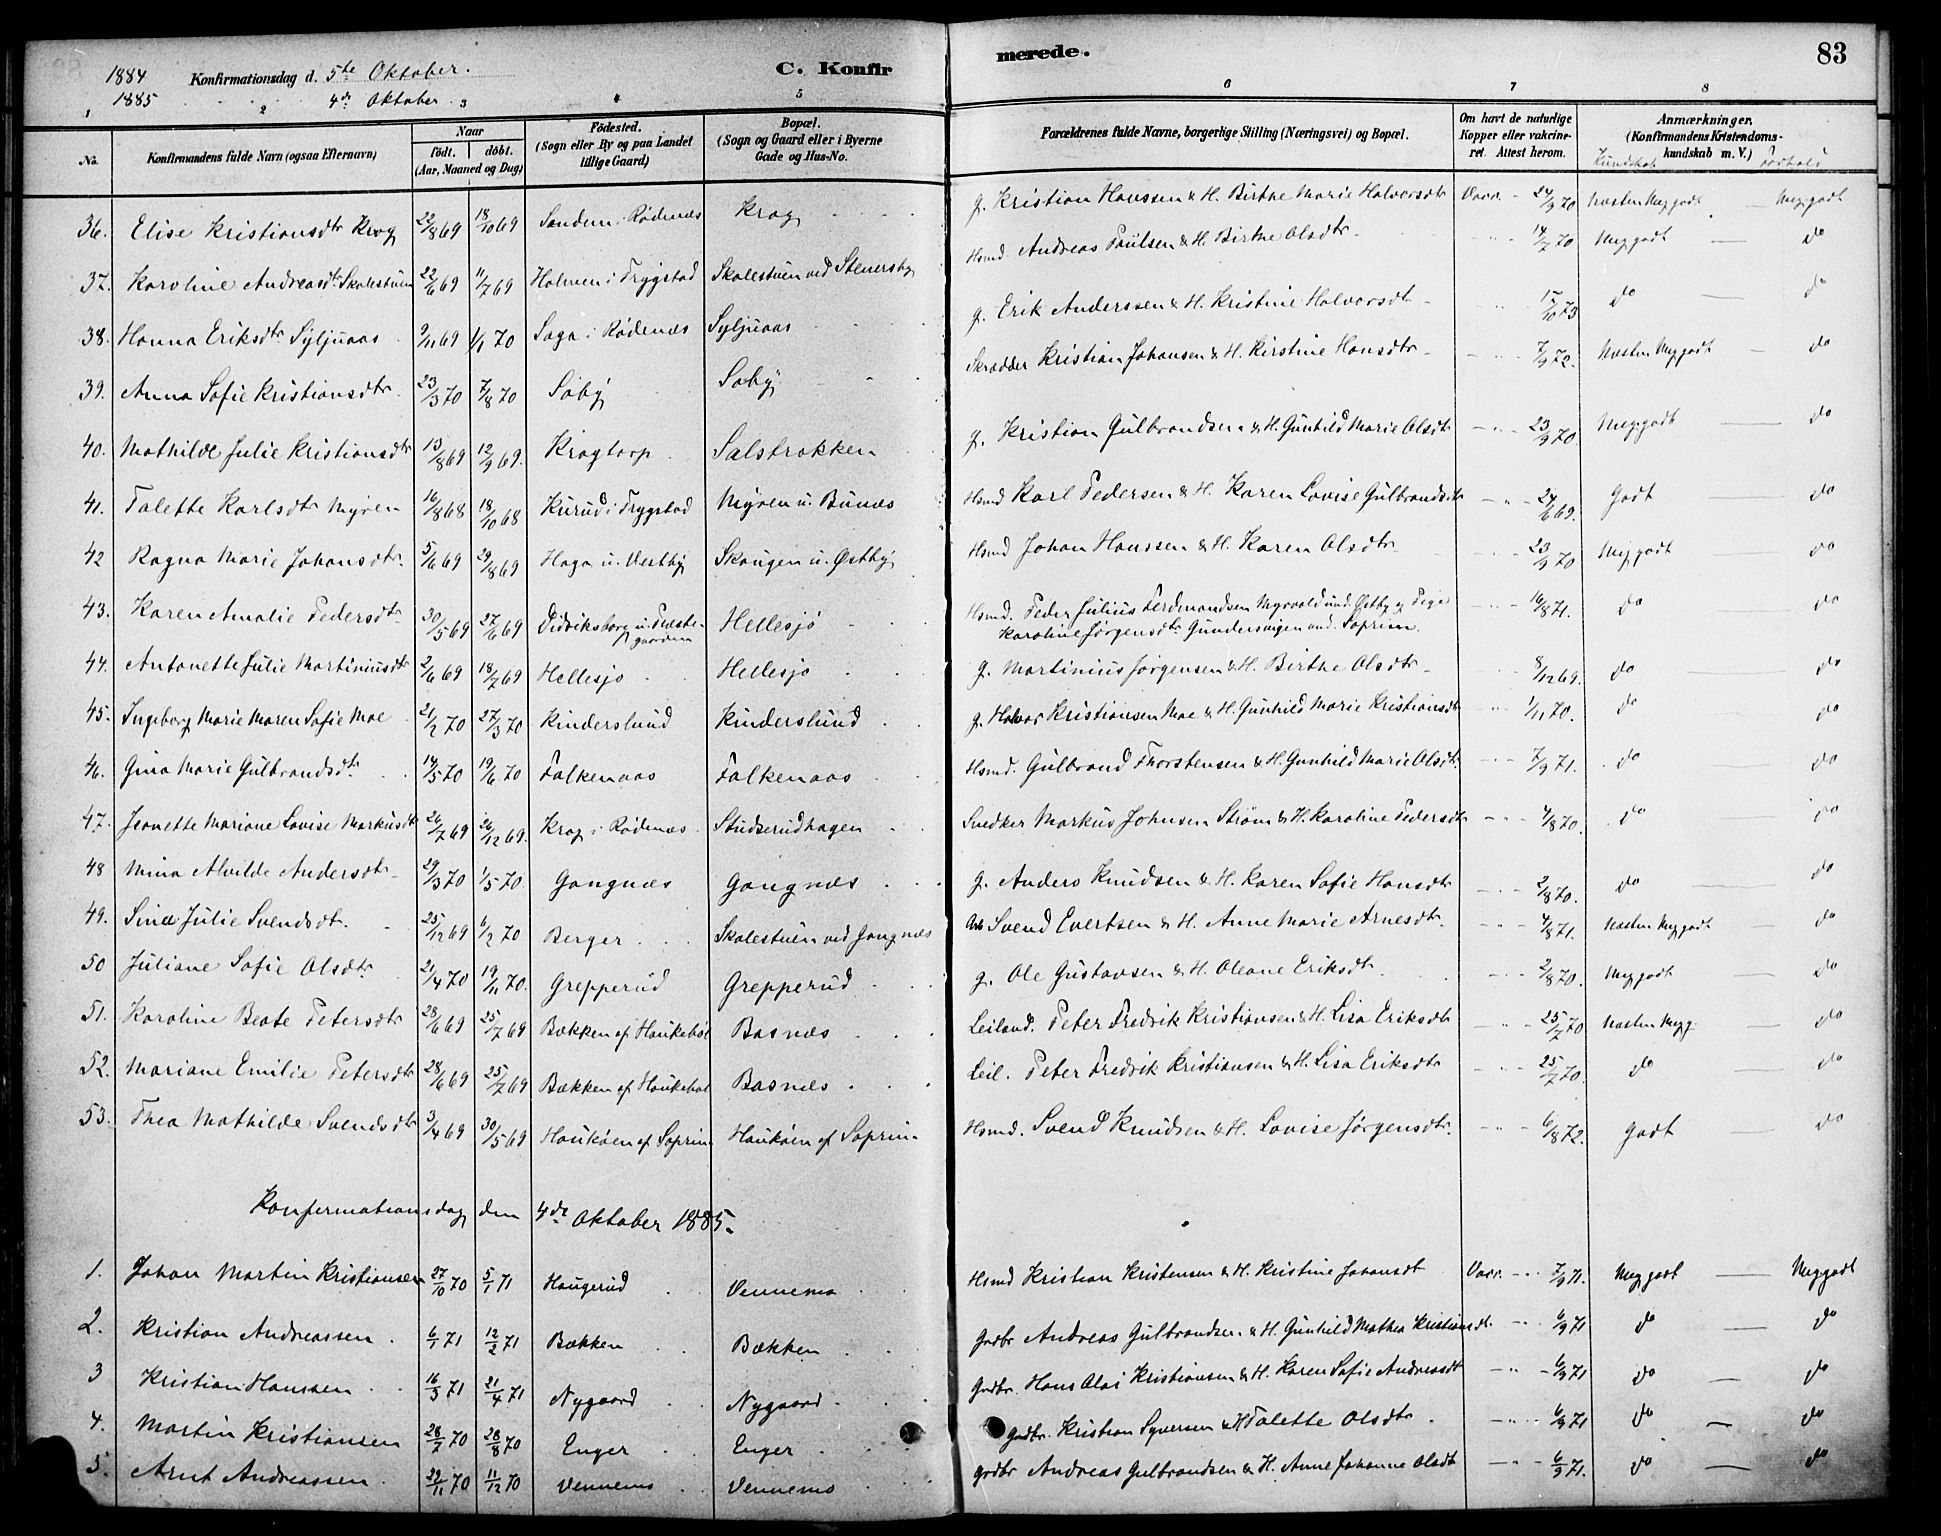 1884 Konfirmationsdag d. 5te Oktober. C. Konfirmerede. 83
1885 4de Oktober
1 2 3 4 5 6 7 8
No. Konfirmandens fulde Navn (ogsaa Efternavn) Naar født. døbt. (Aar, Maaned og Dag) Fødested. (Sogn eller By og paa Landet tillige Gaard) Bopæl. (Sogn og Gaard eller i Byerne Gade og Hus-No. Forældrenes fulde Navne, borgerlige Stilling (Næringsvei) og Bopæl. Om havt de naturlige Kopper eller vakcineret. Attest herom. Anmærkninger. (Konfirmandens Kristendomskundskab m. V.) Kundskab Forhold
36. Elise Kristiansdtr Krog 22/8 69 18/10 69 Sandem i Rødenæs Krog g. Kristian Hanssen & H. Birthe Marie Halvorsdtr Vacc. - 24/9 70 Næsten Meg godt — Meg godt
37. Karoline Andreasdtr Skolestuen 22/6 69 11/7 69 Holmen i Trygstad Skolestuen ved Stenersby Hsmd Andreas Paulsen & H. Birthe Olsdtr - " - 14/7 70 Meg godt — do
38. Hanna Eriksdtr Syljuaas 9/11 69 1/1 70 Saga i Rødenæs Syljuaas g. Erik Anderssen & H. Kristine Halvorsdt - " - 15/10 73 do — do
39. Anna Sofie Kristiansdtr. 23/3 70 7/8 70 Søby Søby Skrædder Kristian Johansen & H. Kirstine Hansdtr - " - 7/9 72. Næsten Meg godt — do
40. Mathilde Julie Kristiansdtr 13/8 69 12/9 69. Krogtorp Salstrokken g. Kristian Gulbrandsen & H. Gunhild Marie Olsdtr - " - 23/9 70 Meg godt — do
41. Talette Karlsdtr Myren 16/8 68 18/10 68 Kurud i Trygstad Myren u. Bunæs Hsmd Karl Pedersen & H. Karen Lovise Gulbrandsdtr - " - 24/6 69. Godt — do
42 Ragna Marie Johansdtr. 5/6 69 29/8 69 Haga u. Vestby Skaugen u. Østby Hsmd Johan Hanssen & H. Karen Olsdtr - " - 23/9 70 Meg godt — do
43. Karen Amalie Pedersdtr 30/5 69 27/6 69 Didriksborg u. Prestegaarden Hellesjø Hsmd. Peder Julius Ferdinandsen Myrvold und. Østby og Pige - " - 16/8 71. do — do
Karoline Jørgensdtr Gundersvigen und. Soprim.
44. Antonette Julie Martiniusdtr 2/6 69 18/7 69 Hellesjø Hellesjø g. Martinius Jørgensen & H. Birthe Olsdtr - " - 8/12 69. do — do
45. Ingeborg Marie Maren Sofie Moe 21/2 70 27/3 70 Kinderslund Kinderslund g. Halvor Kristiansen Moe & H. Gunhild Marie Kristiansdtr - " 1/11 70. do — do
46. Gina Marie Gulbrandsdtr 14/5 70 19/6 70 Falkenaas Falkenaas Hsmd. Gulbrand Thorstensen & H. Gunhild Marie Olsdtr. - " - 7/9 71. do do
47. Jeanette Mariane Lovise Markusdtr 26/7 69 26/12 69. Krog i Rødenæs Studserudhagen Snedker Markus Johnsen Strøm & H. Karoline Pedersdtr - " - 4/8 70. do — do
48 Mina Alvilde Andersdtr 29/3 70 1/5 70 Gangnæs Gangnæs g. Anders Knudsen & H. Karen Sofie Hansdtr - " - 2/8 70. do — do
49. Sina Julie Svendsdt. 25/12 69 6/2 70 Berger Skolestuen ved Gangnæs Arb Svend Evertsen & H. Anne Marie Arnesdtr. - " - 4/8 71. Næsten Meg godt — do
50 Juliane Sofie Olsdtr 21/4 70 19/11 70. Grepperud Grepperud g. Ole Gustavsen & H. Oleane Eriksdt. - " - 2/8 70. Meg godt — do
51. Karoline Beate Petersdtr 28/6 69 25/7 69 Bækken af Haukebøl Basnæs Leiland. Peter Fredrik Kristiansen & H. Lisa Eriksdtr - " - 25/7 70 Næsten Meg. — do
52. Mariane Emilie Petersdtr 28/6 69 25/7 69 Bækken af Haukebøl Basnæs Leil. Peter Fredrik Kristiansen & H. Lisa Eriksdtr - " - 25/7 70. do — do
53. Thea Mathilde Svendsdtr 3/4 69 30/5 69 Haukøen af Soprim Haukøen af Soprim Hsmd. Svend Knudsen & H. Lovise Jørgensdtr. - " - 6/8 72. Godt — do
Konfirmationsdag den 4de Oktober 1885.
1. Johan Martin Kristiansen 27/10 70 5/1 71 Haugerud Vennemo Hsmd Kristian Kristensen & H. Kristine Johansdt Vacc. - " - 7/9 71. Meg godt — Meg godt
2. Kristian Andreassen 6/1 71 12/2 71 Bækken Bækken Grdbr Andreas Gulbrandsen & H. Gunhild Mathea Kristiansdt. - " - 6/9 71 do — do
3 Kristian Hanssen 16/3 71 21/4 71 Nygaard Nygaard Grdbr. Hans Olai Kristiansen & H. Karen Sofie Andreasdt - " - 6/9 71 do — do
4. Martin Kristiansen 28/7 70 28/8 70 Enger Enger Grdbr. Kristian Syversen & H Talette Olsdtr. - " - 6/9 71 do — do
5. Arnt Andreassen 22/11 70 11/12 70 Vennemo Vennemo Grdbr Andreas Gulbrandsen & H. Anne Johanne Olsdt - " - 6/9 71. do — do